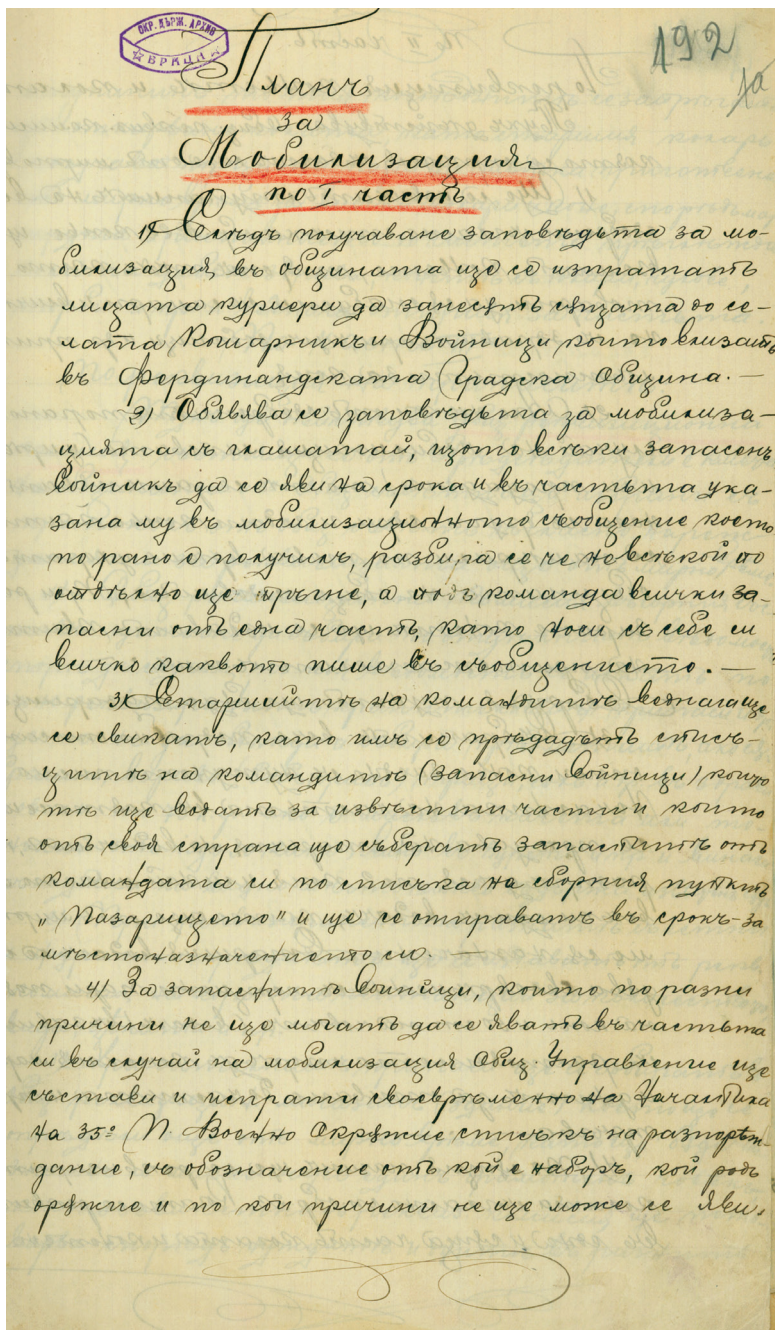 ОКР. ДЪРЖ. АРХИВ
ВРАЦА
192
1а
Планъ
за
Мобилизация
по I часть
1) Следъ получаване заповѣдьта за мо-
билизация, въ общината ще се изпратятъ
лицата куриери да занесятъ сѫщата до се-
лата Кошарникъ и Войници които влизатъ
въ Фердинандската Градска Община. —
2) Обявява се заповѣдьта за мобилиза-
цията съ глашатай, щото всѣки запасенъ
войникъ да се яви на срока и въ частьта ука-
зана му въ мобилизационното съобщение което
по рано е получилъ, разбира се че не всѣкой по
отдѣлно ще тръгне, а подъ команда всички за-
пасни отъ една часть, като носи съ себе си
всичко каквото пише въ съобщението. —
3) Старшийтѣ на командитѣ веднага ще
се свикатъ, като имъ се прѣдадѫтъ списъ-
цитѣ на командитѣ (запасни войници) които
тѣ ще водятъ за извѣстни части и които
отъ своя страна ще събератъ запаснитѣ отъ
командата си по списъка на сборния пунктъ
„Пазарището" и ще се отправятъ въ срокъ за
мѣстоназначението си. —
4) За запаснитѣ войници, които по разни
причини не ще могатъ да се явятъ въ частьта
си въ случай на мобилизация Общ. Управление ще
състави и испрати своеврѣменно на Началника
на 35º П. Военно Окрѫжие списъкъ на разпорѣж-
дание, съ обозначение отъ кой е наборъ, кой родъ
орѫжие и по кои причини не ще може се яви.